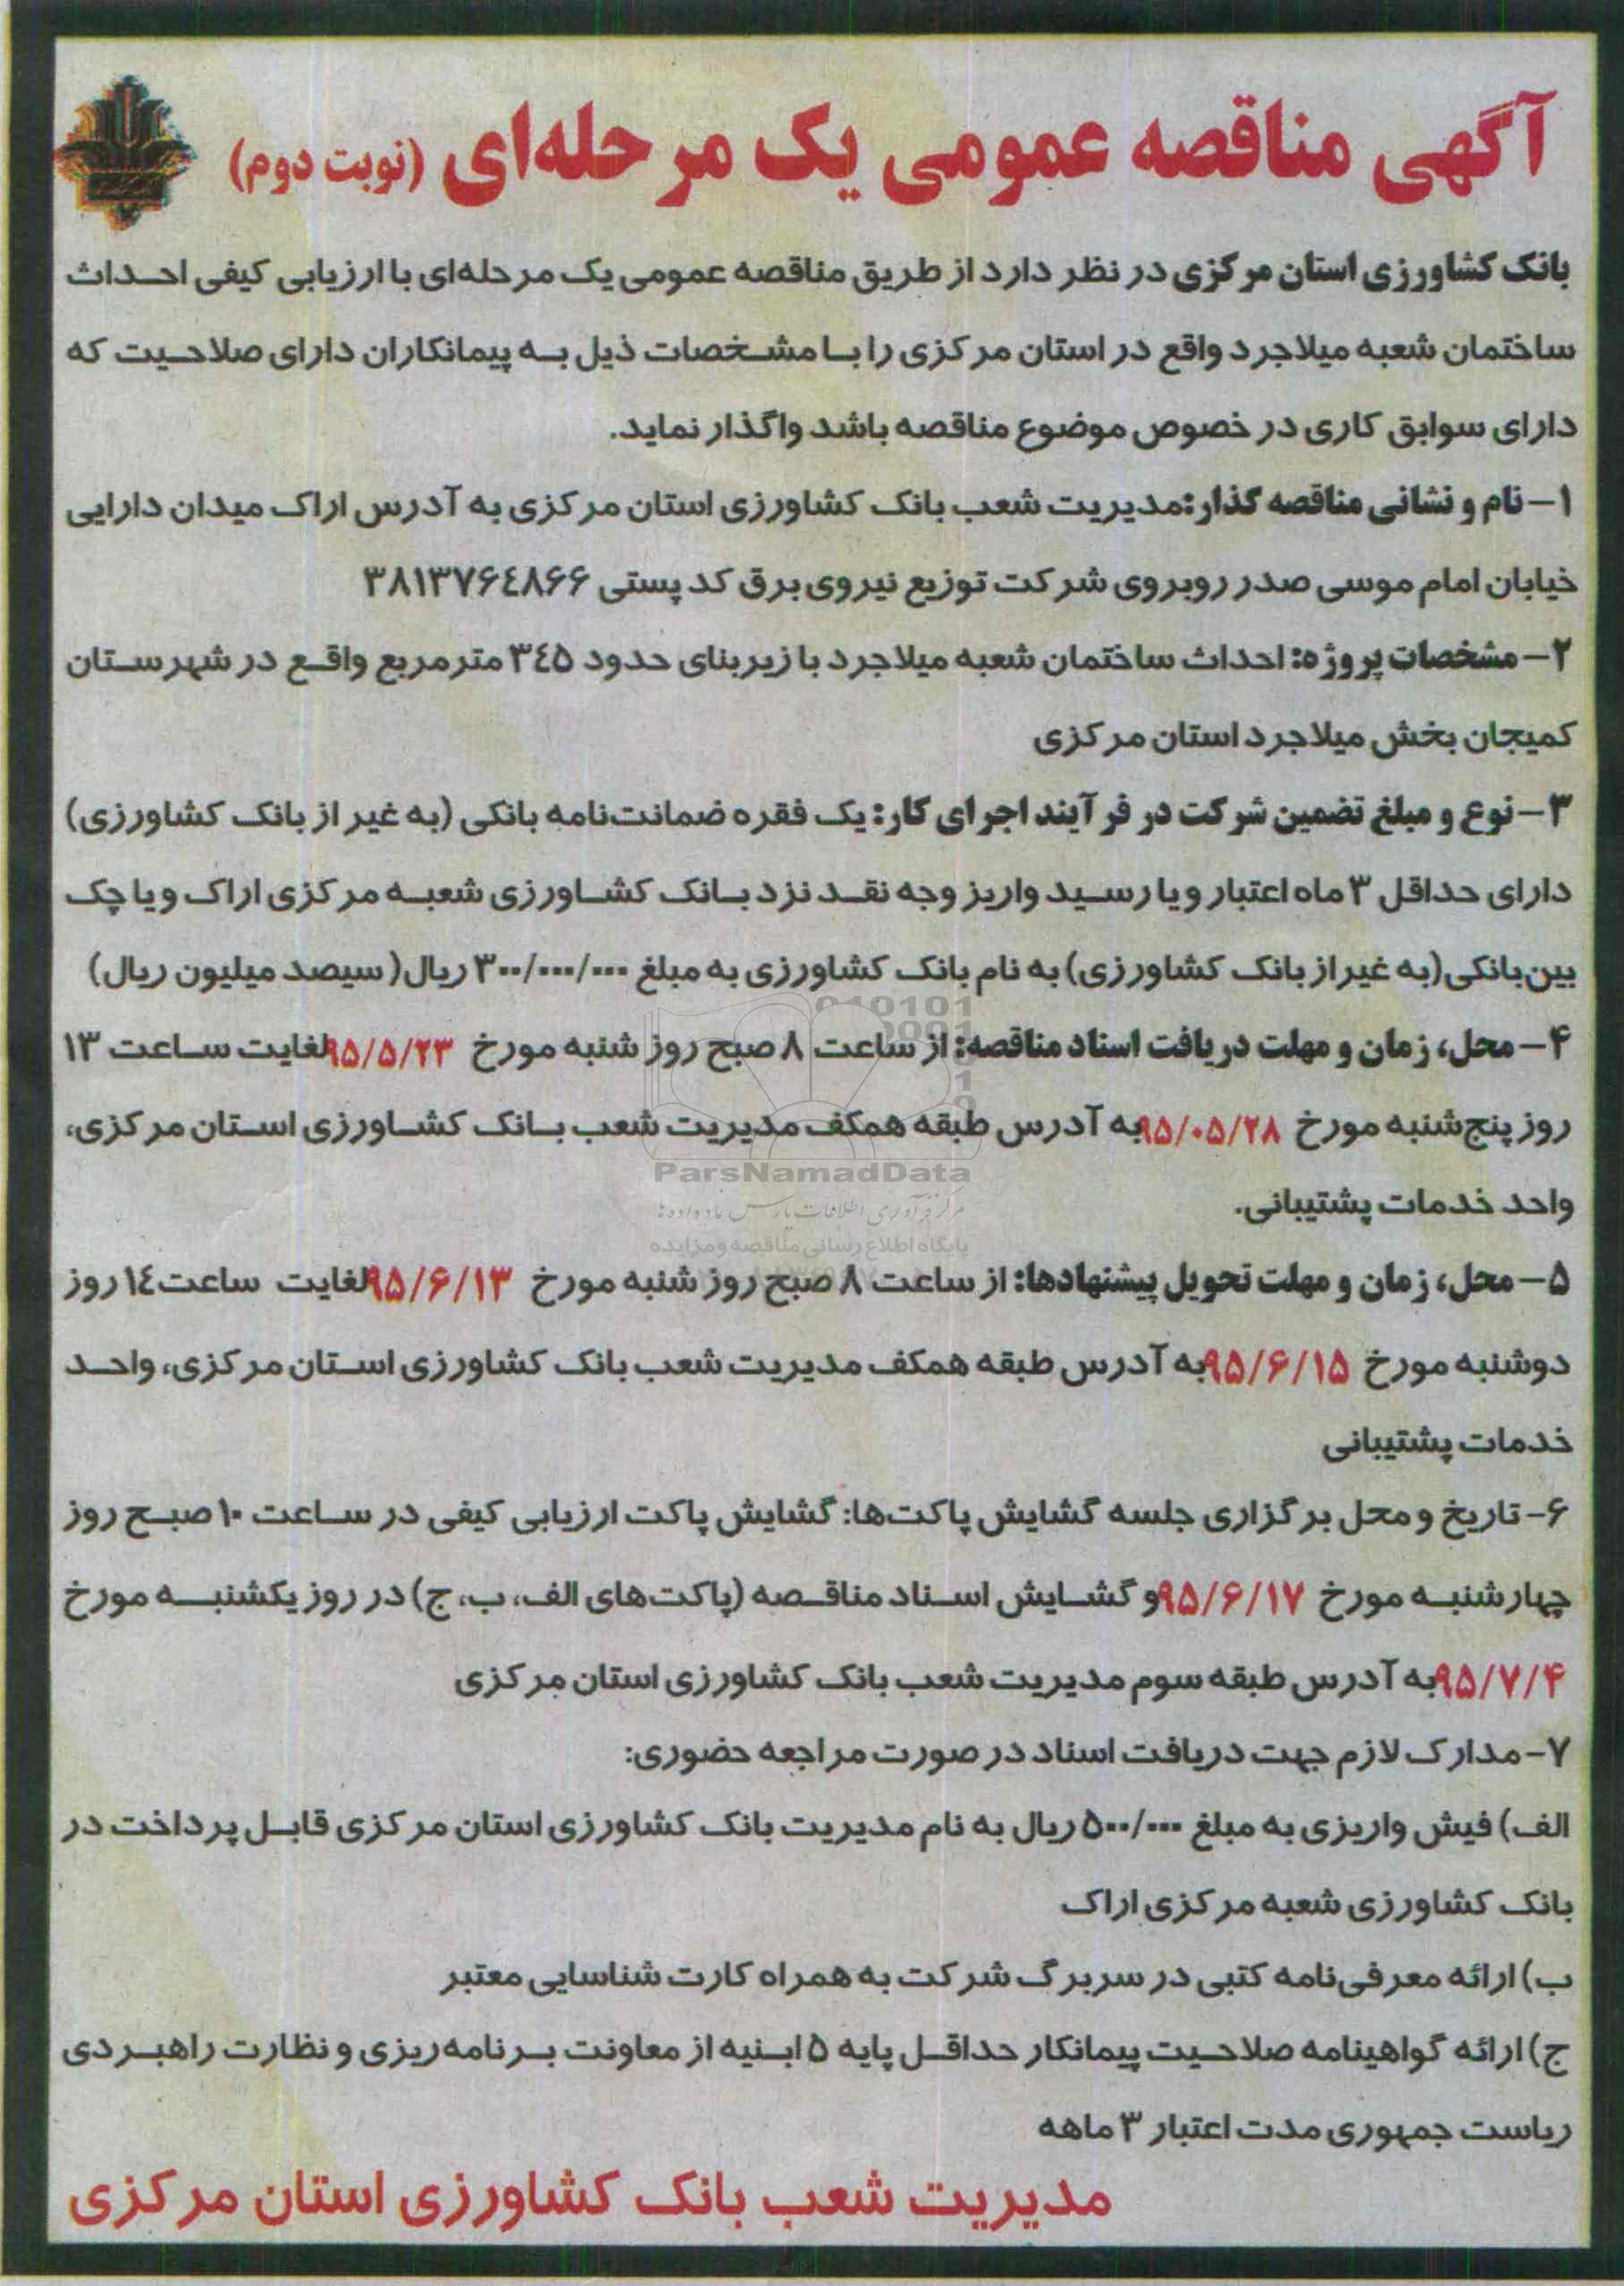 آگهی مناقصه عمومی یک مرحله‌ای (نوبت دوم)
بانک کشاورزی استان مرکزی در نظر دارد از طریق مناقصه عمومی یک مرحله‌ای با ارزیابی کیفی احداث
ساختمان شعبه میلاجرد واقع در استان مرکزی را با مشخصات ذیل به پیمانکاران دارای صلاحیت که
دارای سوابق کاری در خصوص موضوع مناقصه باشد واگذار نماید.
۱- نام و نشانی مناقصه گذار: مدیریت شعب بانک کشاورزی استان مرکزی به آدرس اراک میدان دارایی
خیابان امام موسی صدر روبروی شرکت توزیع نیروی برق کد پستی ۳۸۱۳۷۶٤۸۶۶
۲- مشخصات پروژه: احداث ساختمان شعبه میلاجرد با زیربنای حدود ۳٤۵ مترمربع واقع در شهرستان
کمیجان بخش میلاجرد استان مرکزی
۳- نوع و مبلغ تضمین شرکت در فرآیند اجرای کار: یک فقره ضمانت‌نامه بانکی (به غیر از بانک کشاورزی)
دارای حداقل ۳ ماه اعتبار و یا رسید واریز وجه نقد نزد بانک کشاورزی شعبه مرکزی اراک و یا چک
بین‌بانکی (به غیر از بانک کشاورزی) به نام بانک کشاورزی به مبلغ ۳۰۰/۰۰۰/۰۰۰ ریال (سیصد میلیون ریال)
۴- محل، زمان و مهلت دریافت اسناد مناقصه: از ساعت ۸ صبح روز شنبه مورخ ۹۵/۵/۲۳ لغایت ساعت ۱۳
روز پنج‌شنبه مورخ ۹۵/۰۵/۲۸ به آدرس طبقه همکف مدیریت شعب بانک کشاورزی استان مرکزی،
واحد خدمات پشتیبانی.
۵- محل، زمان و مهلت تحویل پیشنهادها: از ساعت ۸ صبح روز شنبه مورخ ۹۵/۶/۱۳ لغایت ساعت ۱٤ روز
دوشنبه مورخ ۹۵/۶/۱۵ به آدرس طبقه همکف مدیریت شعب بانک کشاورزی استان مرکزی، واحد
خدمات پشتیبانی
۶- تاریخ و محل برگزاری جلسه گشایش پاکت‌ها: گشایش پاکت ارزیابی کیفی در ساعت ۱۰ صبح روز
چهارشنبه مورخ ۹۵/۶/۱۷ و گشایش اسناد مناقصه (پاکت‌های الف، ب، ج) در روز یکشنبه مورخ
۹۵/۷/۴ به آدرس طبقه سوم مدیریت شعب بانک کشاورزی استان مرکزی
۷- مدارک لازم جهت دریافت اسناد در صورت مراجعه حضوری:
الف) فیش واریزی به مبلغ ۵۰۰/۰۰۰ ریال به نام مدیریت بانک کشاورزی استان مرکزی قابل پرداخت در
بانک کشاورزی شعبه مرکزی اراک
ب) ارائه معرفی‌نامه کتبی در سربرگ شرکت به همراه کارت شناسایی معتبر
ج) ارائه گواهینامه صلاحیت پیمانکار حداقل پایه ۵ ابنیه از معاونت برنامه‌ریزی و نظارت راهبردی
ریاست جمهوری مدت اعتبار ۳ ماهه
مدیریت شعب بانک کشاورزی استان مرکزی
ParsNamadData
مرکز فرآوری اطلاعات پارس نماد داده‌ها
پایگاه اطلاع رسانی مناقصه و مزایده